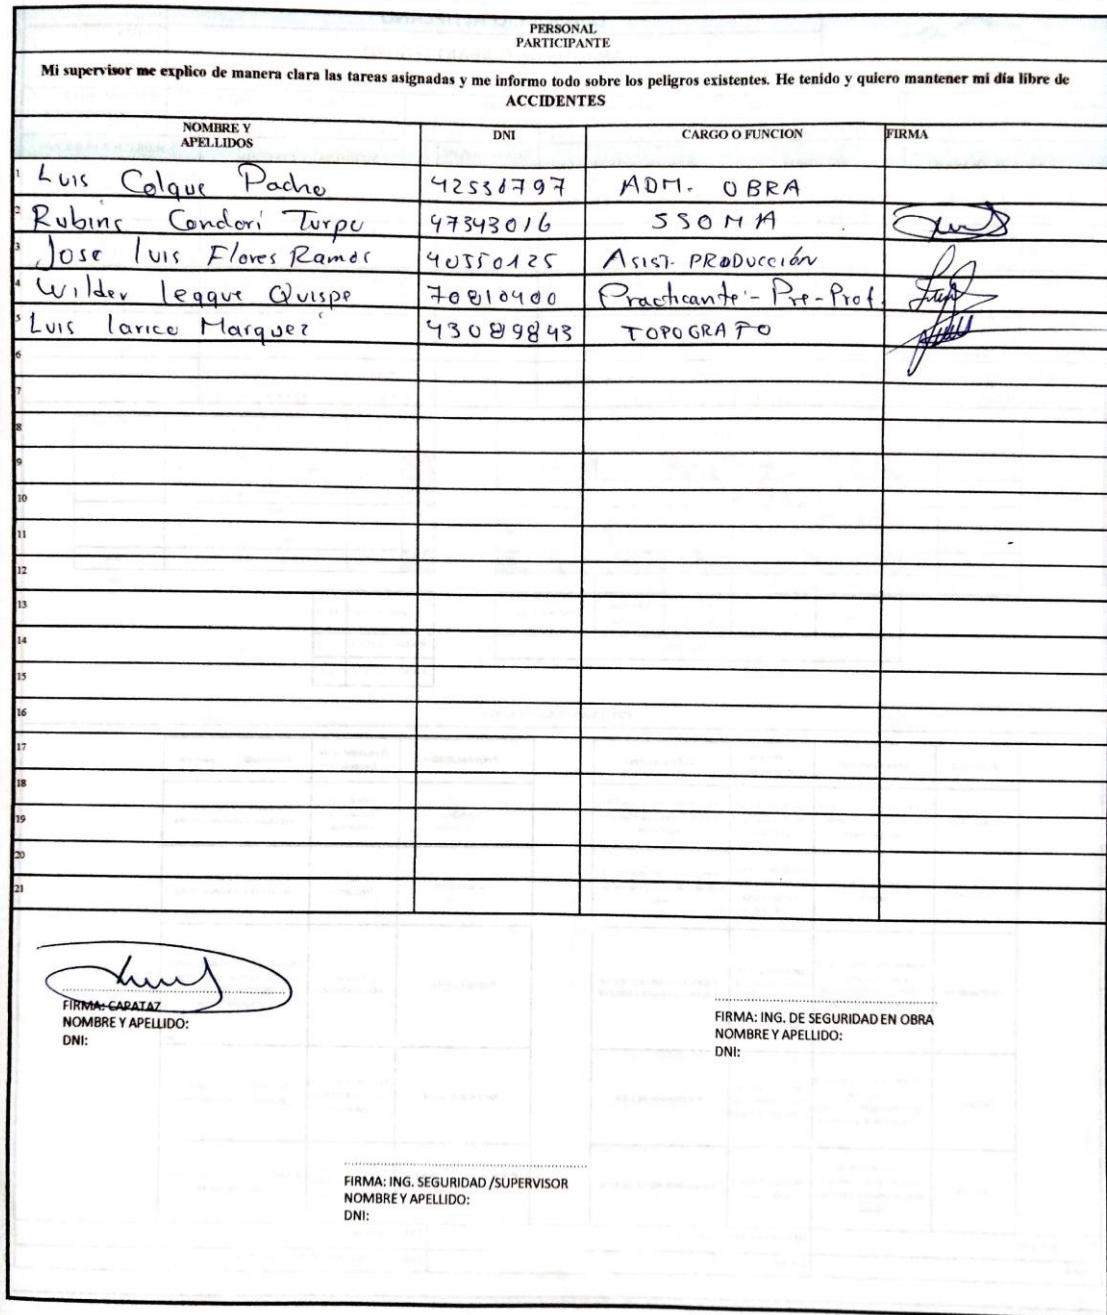 PERSONAL
PARTICIPANTE
Mi supervisor me explico de manera clara las tareas asignadas y me informo todo sobre los peligros existentes. He tenido y quiero mantener mi día libre de
ACCIDENTES
NOMBRE Y APELLIDOS DNI CARGO O FUNCION FIRMA
1 Luis Colque Pacho 42536797 ADM. OBRA
2 Rubins Condori Turpo 47343016 SSOMA
3 Jose luis Flores Ramos 40550125 ASIST. PRODUCCIÓN
4 Wilder leqque Quispe 70810400 Practicante - Pre-Prof.
5 Luis larico Marquez 43089843 TOPOGRAFO
6
7
8
9
10
11
12
13
14
15
16
17
18
19
20
21
FIRMA: CAPATAZ
NOMBRE Y APELLIDO:
DNI:
FIRMA: ING. DE SEGURIDAD EN OBRA
NOMBRE Y APELLIDO:
DNI:
FIRMA: ING. SEGURIDAD /SUPERVISOR
NOMBRE Y APELLIDO:
DNI: